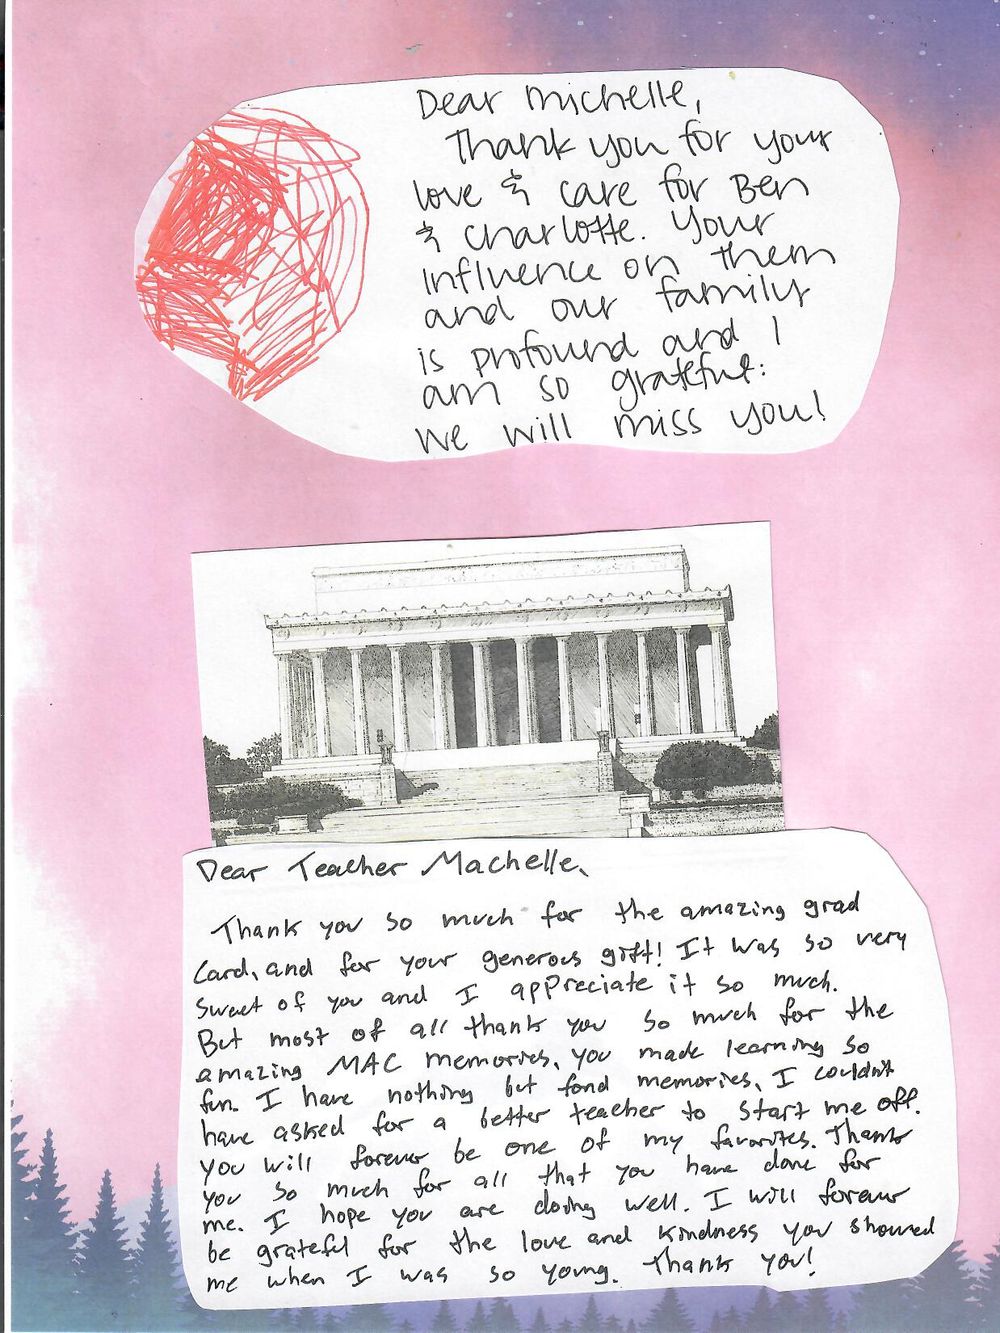 Dear Michelle,
Thank you for your
love & care for Ben
& Charlotte. Your
influence on them
and our family
is profound and I
am so grateful.
We will miss you!
Dear Teacher Machelle,
Thank you so much for the amazing grad
card, and for your generous gift! It was so very
sweet of you and I appreciate it so much.
But most of all thank you so much for the
amazing MAC memories, you made learning so
fun. I have nothing but fond memories, I couldn't
have asked for a better teacher to start me off.
You will forever be one of my favorites. Thank
you so much for all that you have done for
me. I hope you are doing well. I will forever
be grateful for the love and kindness you showed
me when I was so young. Thank you!